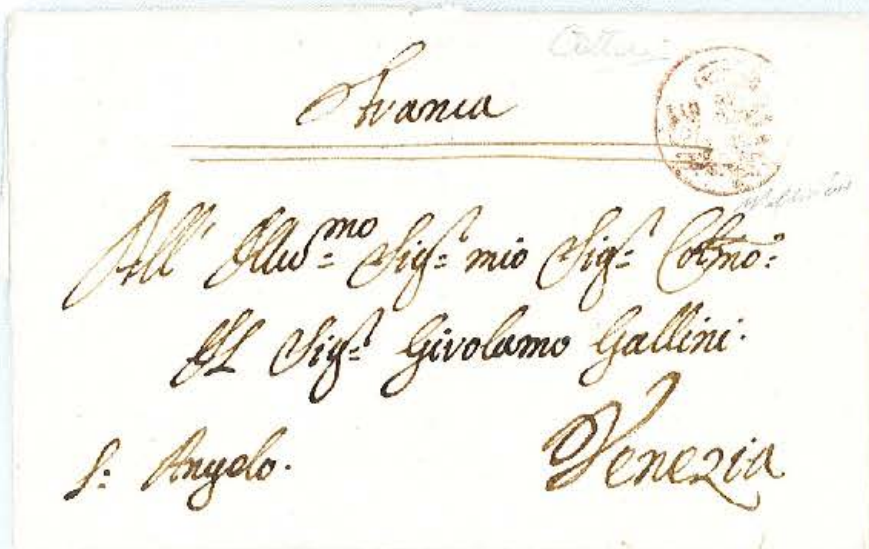 Franca
All' Illus=mo Sig:r mio Sig:r Col:mo:
Il Sig:r Girolamo Gallini.
S: Angelo.
Venezia